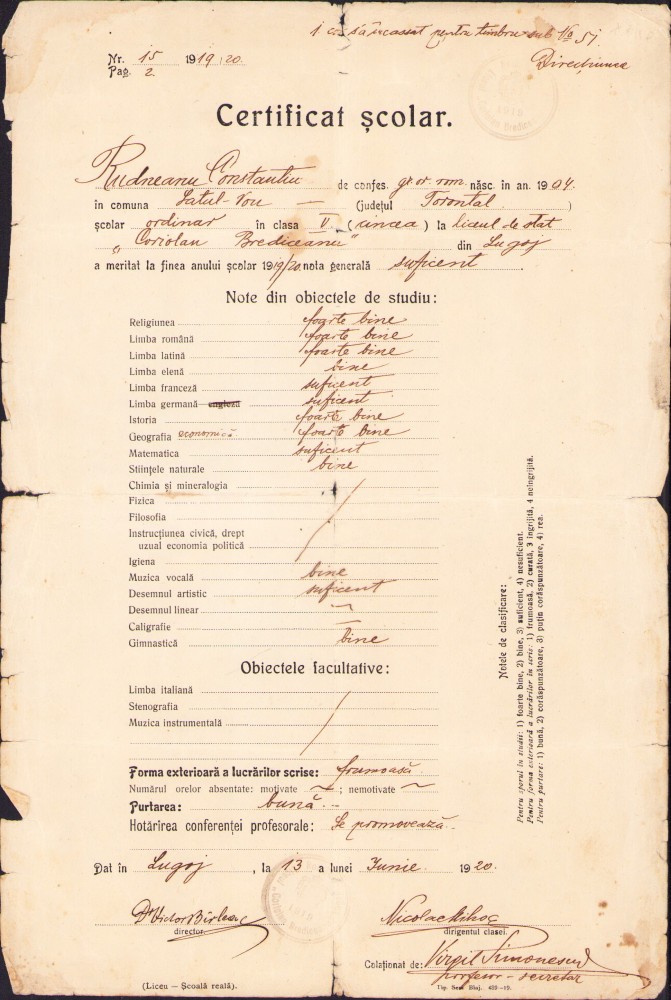 Nr. 15 1919/20.
Pag. 2.
Direcțiunea
Certificat școlar.
Rudneanu Constantin de confes. gr. or. rom. născ. în an. 1904.
în comuna Satul-Nou — (județul Torontal )
școlar ordinar în clasa V ( cincea ) la liceul de stat
„Coriolan Brediceanu" din Lugoj
a meritat la finea anului școlar 1919/20. nota generală suficent
Note din obiectele de studiu:
Religiunea foarte bine
Limba română foarte bine
Limba latină foarte bine
Limba elenă bine
Limba franceză suficent
Limba germană engleză suficent
Istoria foarte bine
Geografia economică foarte bine
Matematica suficent
Stiințele naturale bine
Chimia și mineralogia
Fizica
Filosofia
Instrucțiunea civică, drept
uzual economia politică
Igiena
Muzica vocală bine
Desemnul artistic suficent
Desemnul linear —
Caligrafie —
Gimnastică bine
Obiectele facultative:
Limba italiană
Stenografia
Muzica instrumentală
Forma exterioară a lucrărilor scrise: frumoasă
Numărul orelor absentate: motivate ~ ; nemotivate ~
Purtarea: bună.-
Hotărirea conferenței profesorale: Se promovează.
Dat în Lugoj , la 13 a lunei Iunie 1920.
Dr Victor Bîrlea
director.
Nicolae
dirigentul clasei.
Colaționat de: Virgil Simonescu
profesor-secretar
(Liceu — Școală reală).
Tip. Sem. Blaj. 423—19.
Notele de clasificare:
Pentru sporul în studii: 1) foarte bine, 2) bine, 3) suficient, 4) nesuficient.
Pentru forma exterioară a lucrărilor în scris: 1) frumoasă, 2) curată, 3 îngrijită, 4 neîngrijită.
Pentru purtare: 1) bună, 2) corăspunzătoare, 3) puțin corăspunzătoare, 4) rea.